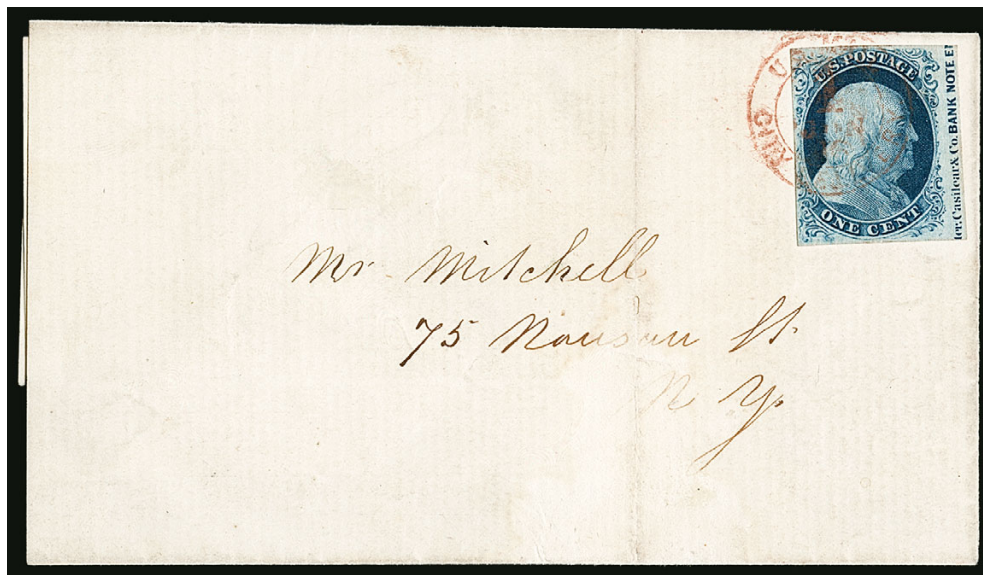 U.S. POSTAGE
ONE CENT
ler. Casilear & Co. BANK NOTE E
Mr Mitchell
75 Nausau St
N Y.